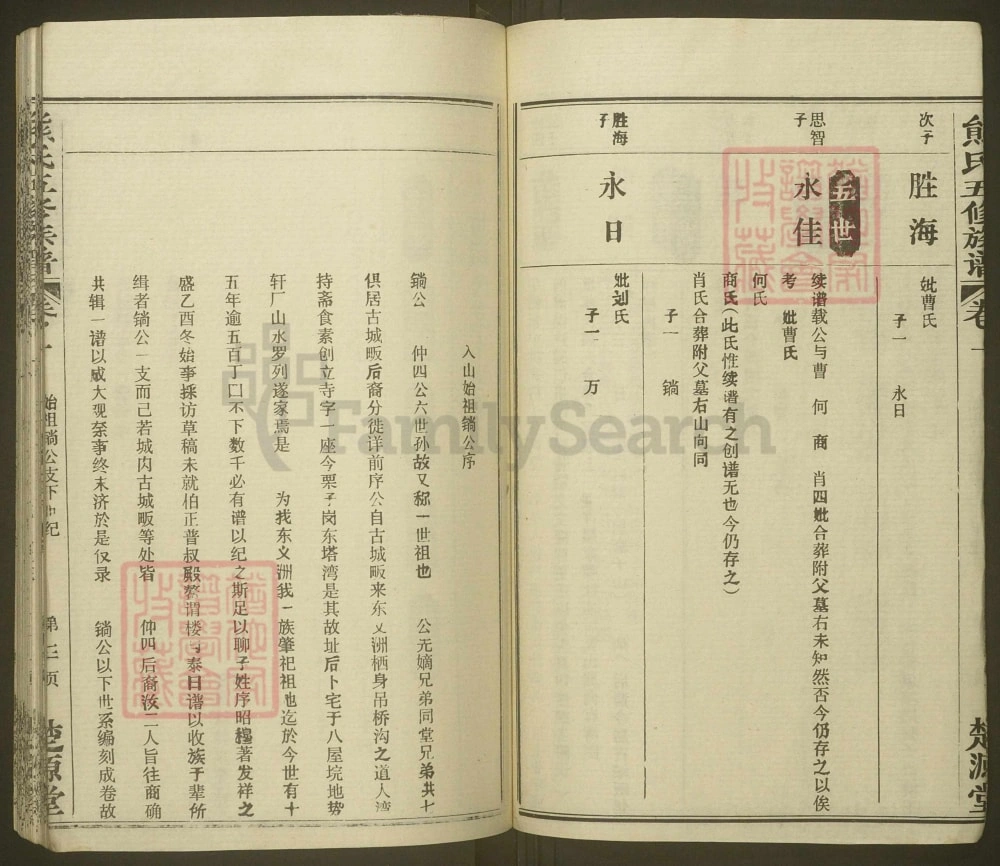 熊氏五修族谱 卷一
楚源堂
次子
胜海
妣曹氏
子一 永日
五世
思智
子
永佳
续谱载公与曹 何 商 肖四妣合葬附父墓右未知然否今仍存之以俟
考 妣曹氏
何氏
商氏(此氏惟续谱有之创谱无也今仍存之)
肖氏合葬附父墓右山向同
子一 锵
胜海
子
永日
妣刘氏
子一 万
入山始祖锵公序
锵公 仲四公六世孙故又称一世祖也 公无嫡兄弟同堂兄弟共七
俱居古城畈后裔分徙详前序公自古城畈来东义洲栖身吊桥沟之道人湾
持斋食素创立寺字一座今栗子岗东塔湾是其故址后卜宅于八屋垸地势
轩厂山水罗列遂家焉是 为找东义洲我一族肇祀祖也迄於今世有十
五年逾五百丁口不下数千必有谱以纪之斯足以聊子姓序昭穆著发祥之
盛乙酉冬始事採访草稿未就柏正普叔殿鳌谓楼与泰曰谱以收族于辈所
缉者锵公一支而己若城内古城畈等处皆 仲四后裔汝二人旨往商确
共辑一谱以成大观奈事终未济於是仅录 锵公以下世系编刻成卷故
始祖锵公支下中纪
第三页
楚源堂
FamilySearch